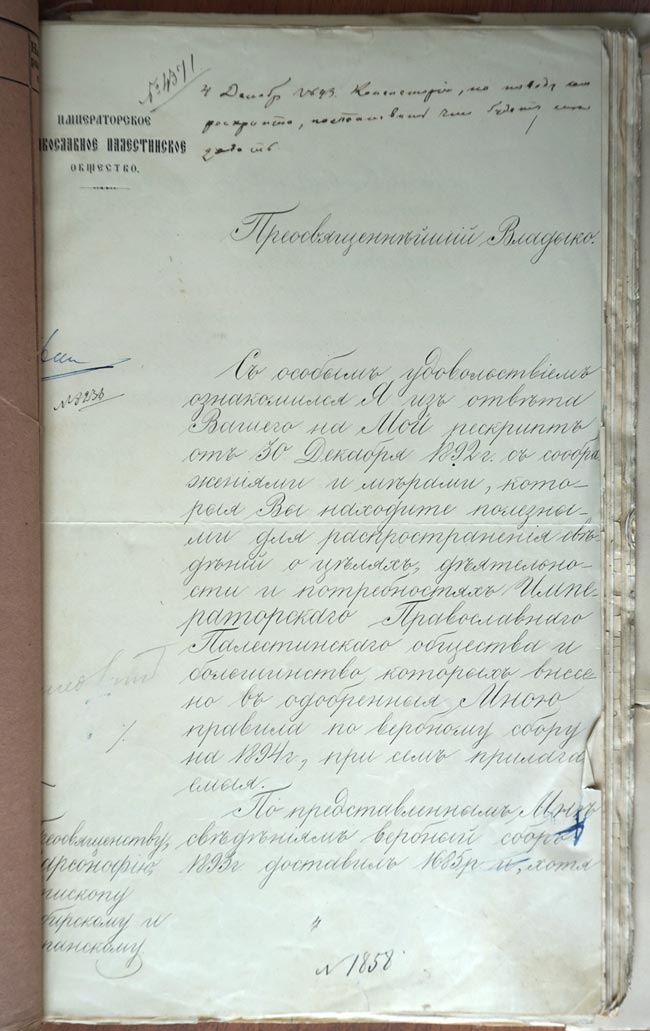 № 4371
4 Декабр 1893. Консисторіи, по поводу
рескрипта, постановить чт будетъ
ИМПЕРАТОРСКОЕ
ВОСЛАВНОЕ ПАЛЕСТИНСКОЕ
ОБЩЕСТВО.
Преосвященнѣйшій Владыко.
№ 3236
Съ особымъ удовольствіемъ
ознакомился Я изъ отвѣта
Вашего на Мой рескриптъ
отъ 30 Декабря 1892 г. съ сообра
женіями и мѣрами, кото-
рыя Вы находите полезны-
ми для распространенія свѣ-
дѣній о цѣляхъ, дѣятельно-
сти и потребностяхъ Импе-
раторскаго Православнаго
Палестинскаго общества и
большинство которыхъ внесе-
но въ одобренныя Мною
правила по вербному сбору
на 1894 г., при семъ прилага
емыя.
По представленнымъ Мнѣ
свѣдѣніямъ вербный сборъ
1893 г доставилъ 1683 р и, хотя
реосвященству,
арсонофію,
пископу
бирскому и
ранскому
4
№ 1858